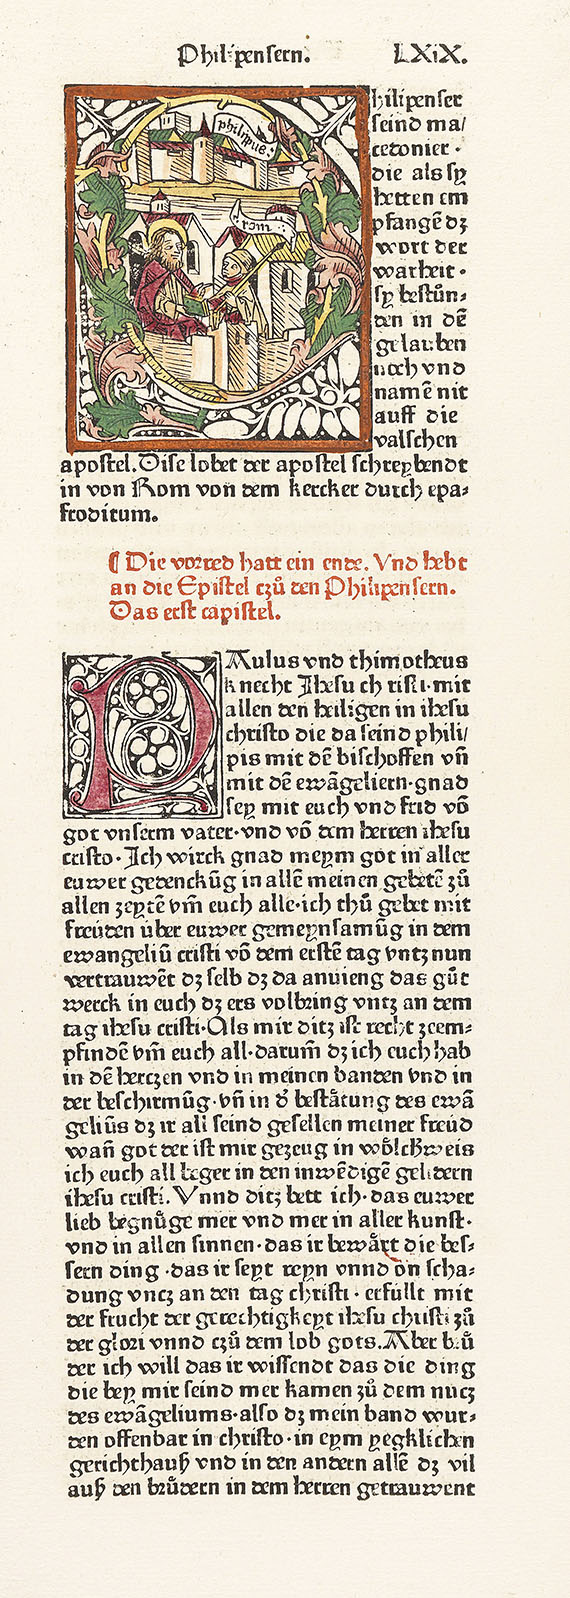 Philipensern. LXiX.
philipus.
rom
hilipenser
seind ma/
cedonier·
die als sy
hetten em
pfangē dz
wort der
warheit·
sy bestůn⸗
den in dē
gelauben
noch vnd
namē nit
auff die
valschen
apostel. Dise lobet der apostel schreybendt
in von Rom von dem kercker durch epa⸗
froditum.
¶ Die vorred hatt ein ende. Vnd hebt
an die Epistel czů den Philipensern.
Das erst capistel.
PAulus vnd thimotheus
knecht Jhesu christi·mit
allen den heiligen in ihesu
christo die da seind phili/
pis mit dē bischoffen vn̄
mit dē ewāgeliern·gnad
sey mit euch vnd frid vō
got vnserm vater·vnd vō dem herren ihesu
cristo·Ich wirck gnad meym got in aller
euwer gedenckūg in allē meinen gebetē zů
allen zeytē vm̄ euch alle·ich thů gebet mit
freüden über euwer gemeynsamūg in dem
ewangeliū cristi vō dem erstē tag vntz nun
vertrauwēt dz selb dz da anuieng das gůt
werck in euch dz ers volbring vntz an dem
tag ihesu cristi·Als mir ditz ist recht zeem⸗
pfindē vm̄ euch all·darum̄ dz ich euch hab
in dē herczen vnd in meinen banden vnd in
der beschirmūg·vn̄ in d̕ bestätung des ewā
geliūs dz ir all seind gesellen meiner freüd
wan̄ got der ist mir gezeug in wölchßweis
ich euch all beger in den inwēdigē gelidern
ihesu cristi. Vnnd ditz bett ich·das euwer
lieb begnüge mer vnd mer in aller kunst·
vnd in allen sinnen·das ir bewärt die bes⸗
sern ding·das ir seyt reyn vnnd on scha⸗
dung vncz an den tag christi·erfüllt mit
der frucht der gerechtigkeyt ihesu christi zů
der glori vnnd czů dem lob gots. Aber brů
der ich will das ir wissendt das die ding
die bey mir seind mer kamen zů dem nucz
des ewāgeliums·also dz mein band wur⸗
den offenbar in christo·in eym yegklichen
gerichthauß vnd in den andern allē dz vil
auß den brůdern in dem herren getrauwent